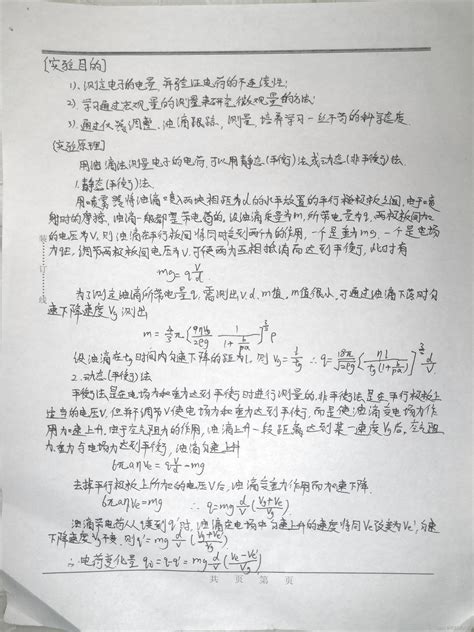 [实验目的]
1)、测定电子的电量,并验证电荷的不连续性;
2) 学习通过宏观量的测量来研究微观量的方法;
3)、通过仪器调整、油滴跟踪、测量,培养学习一丝不苟的科学态度
[实验原理]
用油滴法测量电子的电荷,可以用静态(平衡)法或动态(非平衡)法
1.静态(平衡)法
用喷雾器将油滴喷入两块相距为d的水平放置的平行极板之间,由于喷
射时的摩擦,油滴一般都是带电荷的,设油滴质量为m,所带电量为q,两极板间加
的电压为V,则油滴在平行板间将同时受到两个力的作用,一个是重力mg,一个是电场
力qE,调节两极板间电压为V,可使两力互相抵消而达到平衡,此时有
mg=q V/d
为了测定油滴所带电量q,需测出V.d.m值,m值很小,可通过油滴下落时匀
速下降速度Vg测出
设油滴在tg时间内匀速下降的距为l,则 Vg=l/tg
2.动态(平衡)法
平衡法是在电场力和重力达到平衡时进行测量的,非平衡法是在平行极板上
适当的电压V,但并不调节V使电场力和重力达到平衡,而是使油滴受电场力作
用加速上升,由于空气阻力的作用,油滴上升一段距离达到某一速度Ve后,空气阻
力、重力与电场力达到平衡,油滴匀速上升
6πaηVe=q V/d-mg
去掉平行极板上所加的电压V后,油滴受重力作用而加速下降.
油滴带电荷从q变到q'时,油滴在电场中匀速上升的速度将同Ve改变为Ve',匀速
下降速度Vg不变,则q'=mg d/V (Vg+Ve'/Vg)
∴电荷变化量 q0=q-q'=mg d/V (Ve-Ve'/Vg)
装
订
线
共 页 第 页